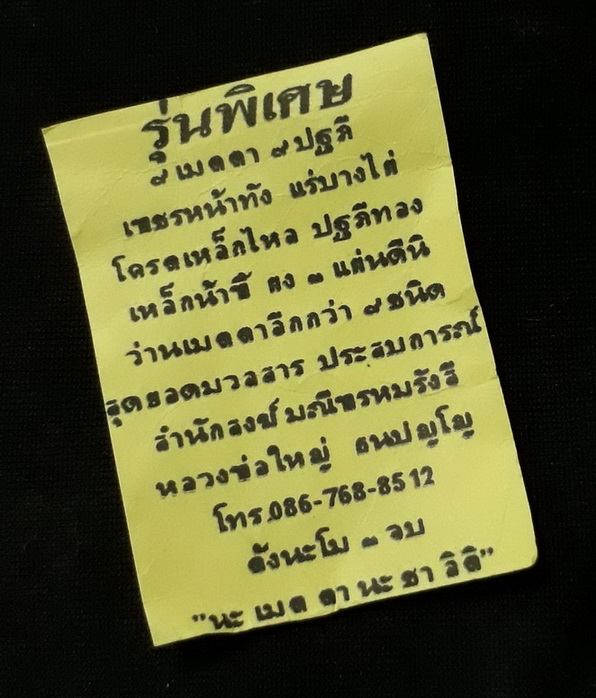 รุ่นพิเศษ
๙ เมตตา ๙ ปฐภี
เพชรหน้าทั่ง แร่บางไผ่
โครตเหล็กไหล ปฐภีทอง
เหล็กน้ำพี้ ผง ๓ แผ่นดิน
ว่านเมตตาอีกกว่า ๙ ชนิด
สุดยอดมวลสาร ประสบการณ์
สำนักสงฆ์ รังสี
หลวงพ่อใหญ่ ธนปญฺโญ
โทร.086-768-8512
ตั้งนะโม ๓ จบ
"นะ เมต ตา นะ ชา ลิติ"